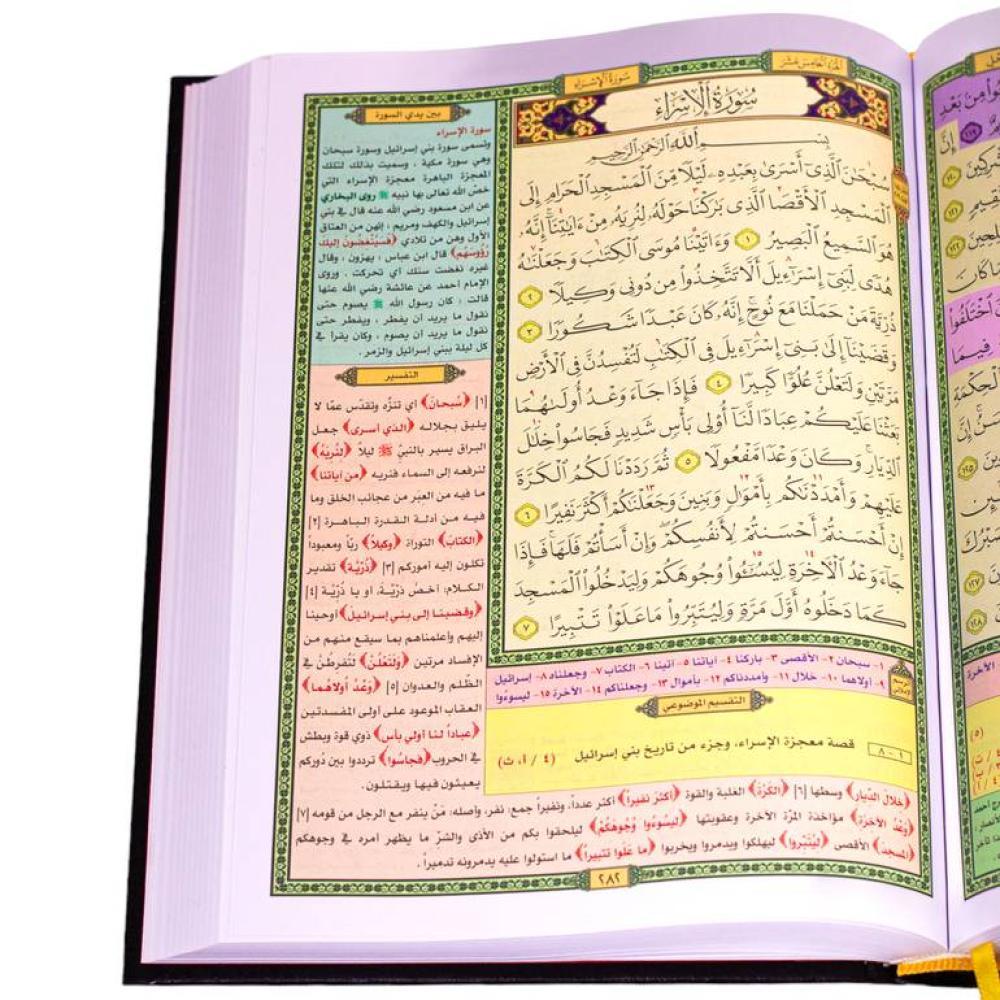 الجزء الخامس عشر
سورة الإسراء
سُورَةُ الإِسْرَاءِ
بِسْمِ اللَّهِ الرَّحْمَٰنِ الرَّحِيمِ
سُبْحَٰنَ الَّذِي أَسْرَىٰ بِعَبْدِهِۦ لَيْلًا مِّنَ الْمَسْجِدِ الْحَرَامِ إِلَى
الْمَسْجِدِ الْأَقْصَا الَّذِي بَٰرَكْنَا حَوْلَهُۥ لِنُرِيَهُۥ مِنْ ءَايَٰتِنَآ إِنَّهُۥ
هُوَ السَّمِيعُ الْبَصِيرُ ١ وَءَاتَيْنَا مُوسَى الْكِتَٰبَ وَجَعَلْنَٰهُ
هُدًى لِّبَنِيٓ إِسْرَٰٓءِيلَ أَلَّا تَتَّخِذُوا۟ مِن دُونِي وَكِيلًا ٢
ذُرِّيَّةَ مَنْ حَمَلْنَا مَعَ نُوحٍ إِنَّهُۥ كَانَ عَبْدًا شَكُورًا ٣
وَقَضَيْنَآ إِلَىٰ بَنِيٓ إِسْرَٰٓءِيلَ فِي الْكِتَٰبِ لَتُفْسِدُنَّ فِي الْأَرْضِ
مَرَّتَيْنِ وَلَتَعْلُنَّ عُلُوًّا كَبِيرًا ٤ فَإِذَا جَآءَ وَعْدُ أُولَىٰهُمَا
بَعَثْنَا عَلَيْكُمْ عِبَادًا لَّنَآ أُو۟لِي بَأْسٍ شَدِيدٍ فَجَاسُوا۟ خِلَٰلَ
الدِّيَارِ وَكَانَ وَعْدًا مَّفْعُولًا ٥ ثُمَّ رَدَدْنَا لَكُمُ الْكَرَّةَ
عَلَيْهِمْ وَأَمْدَدْنَٰكُم بِأَمْوَٰلٍ وَبَنِينَ وَجَعَلْنَٰكُمْ أَكْثَرَ نَفِيرًا ٦
إِنْ أَحْسَنتُمْ أَحْسَنتُمْ لِأَنفُسِكُمْ وَإِنْ أَسَأْتُمْ فَلَهَا فَإِذَا
جَآءَ وَعْدُ الْآخِرَةِ لِيَسُۥٓـُٔوا۟ وُجُوهَكُمْ وَلِيَدْخُلُوا۟ الْمَسْجِدَ
كَمَا دَخَلُوهُ أَوَّلَ مَرَّةٍ وَلِيُتَبِّرُوا۟ مَا عَلَوْا۟ تَتْبِيرًا ٧
الرسم الإملائي
١- سبحان ٢- الأقصى ٣- باركنا ٤- آياتنا ٥- آتينا ٦- الكتاب ٧- وجعلناه ٨- إسرائيل
٩- أولاهما ١٠- خلال ١١- وأمددناكم ١٢- بأموال ١٣- وجعلناكم ١٤- الآخرة ١٥- ليسوءُوا
التقسيم الموضوعي
١ – ٨ قصة معجزة الإسراء، وجزء من تاريخ بني إسرائيل (٤ / أ، ث)
بين يدي السورة
سورة الإسراء
وتسمى سورة بني إسرائيل وسورة سبحان
وهي سورة مكية ، وسميت بذلك لتلك
المعجزة الباهرة معجزة الإسراء التي
خصّ الله تعالى بها نبيه ﷺ روى البخاري
عن ابن مسعود رضي الله عنه قال في بني
إسرائيل والكهف ومريم ، إنهن من العتاق
الأول وهن من تلادي ﴿فَسَيُنْغِضُونَ إليك
رُؤُوسهم﴾ قال ابن عباس ، يهزون ، وقال
غيره نغضت سنك أي تحركت ، وروى
الإمام أحمد عن عائشة رضي الله عنها
قالت ، كان رسول الله ﷺ يصوم حتى
نقول ما يريد أن يفطر ، ويفطر حتى
نقول ما يريد أن يصوم ، وكان يقرأ في
كل ليلة ببني إسرائيل والزمر.
التفسير
[١] ﴿سُبحانَ﴾ أي تنزّه وتقدّس عمّا لا
يليق بجلاله ﴿الذي أسرى﴾ جعل
البراق يسير بالنبيّ ﷺ ليلاً ﴿لنُريَهُ﴾
لنرفعه إلى السماء فنريه ﴿من آياتنا﴾
ما فيه من العِبَر من عجائب الخلق وما
فيه من أدلة القدرة الباهرة [٢]
﴿الكتابَ﴾ التوراة ﴿وكيلاً﴾ ربّاً ومعبوداً
تكلون إليه أموركم [٣] ﴿ذُرّيَّة﴾ تقدير
الكلام: أخصّ ذرّيّة، أو يا ذُرّيَّة [٤]
﴿وقضينا إلى بني إسرائيل﴾ أوحينا
إليهم وأعلمناهم بما سيقع منهم من
الإفساد مرتين ﴿ولتَعْلُنَّ﴾ لتُفرطُنّ في
الظّلم والعدوان [٥] ﴿وَعْدُ أولاهما﴾
العقاب الموعود على أولى المفسدتين
﴿عباداً لنا أولي بأس﴾ ذوي قوة وبطش
في الحروب ﴿فجاسُوا﴾ ترددوا بين دُوركم
يعيثون فيها ويقتلون.
﴿خلالَ الدّيار﴾ وسطها [٦] ﴿الكَرَّةَ﴾ الغلبة والقوة ﴿أكثرَ نفيراً﴾ أكثر عدداً، ونفيراً جمع: نفر، وأصله: مَنْ ينفر مع الرجل من قومه [٧]
﴿وَعْدُ الآخرَة﴾ مؤاخذة المرّة الآخرة وعقوبتها ﴿ليسُوءُوا وُجُوهَكُمْ﴾ ليلحقوا بكم من الأذى والشرّ ما يظهر أمره في وجوهكم
﴿المسجدَ﴾ الأقصى ﴿ليُتَبّروا﴾ ليهلكوا ويدمروا ويخربوا ﴿ما عَلَوا تتبيراً﴾ ما استولوا عليه يدمرونه تدميراً.
٢٨٢